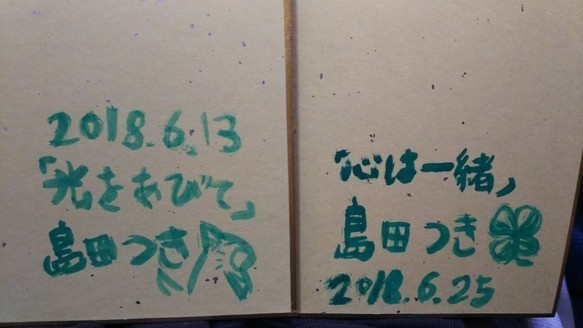 2018.6.13
「光をあびて」
島田つき
「心は一緒」
島田つき
2018.6.25